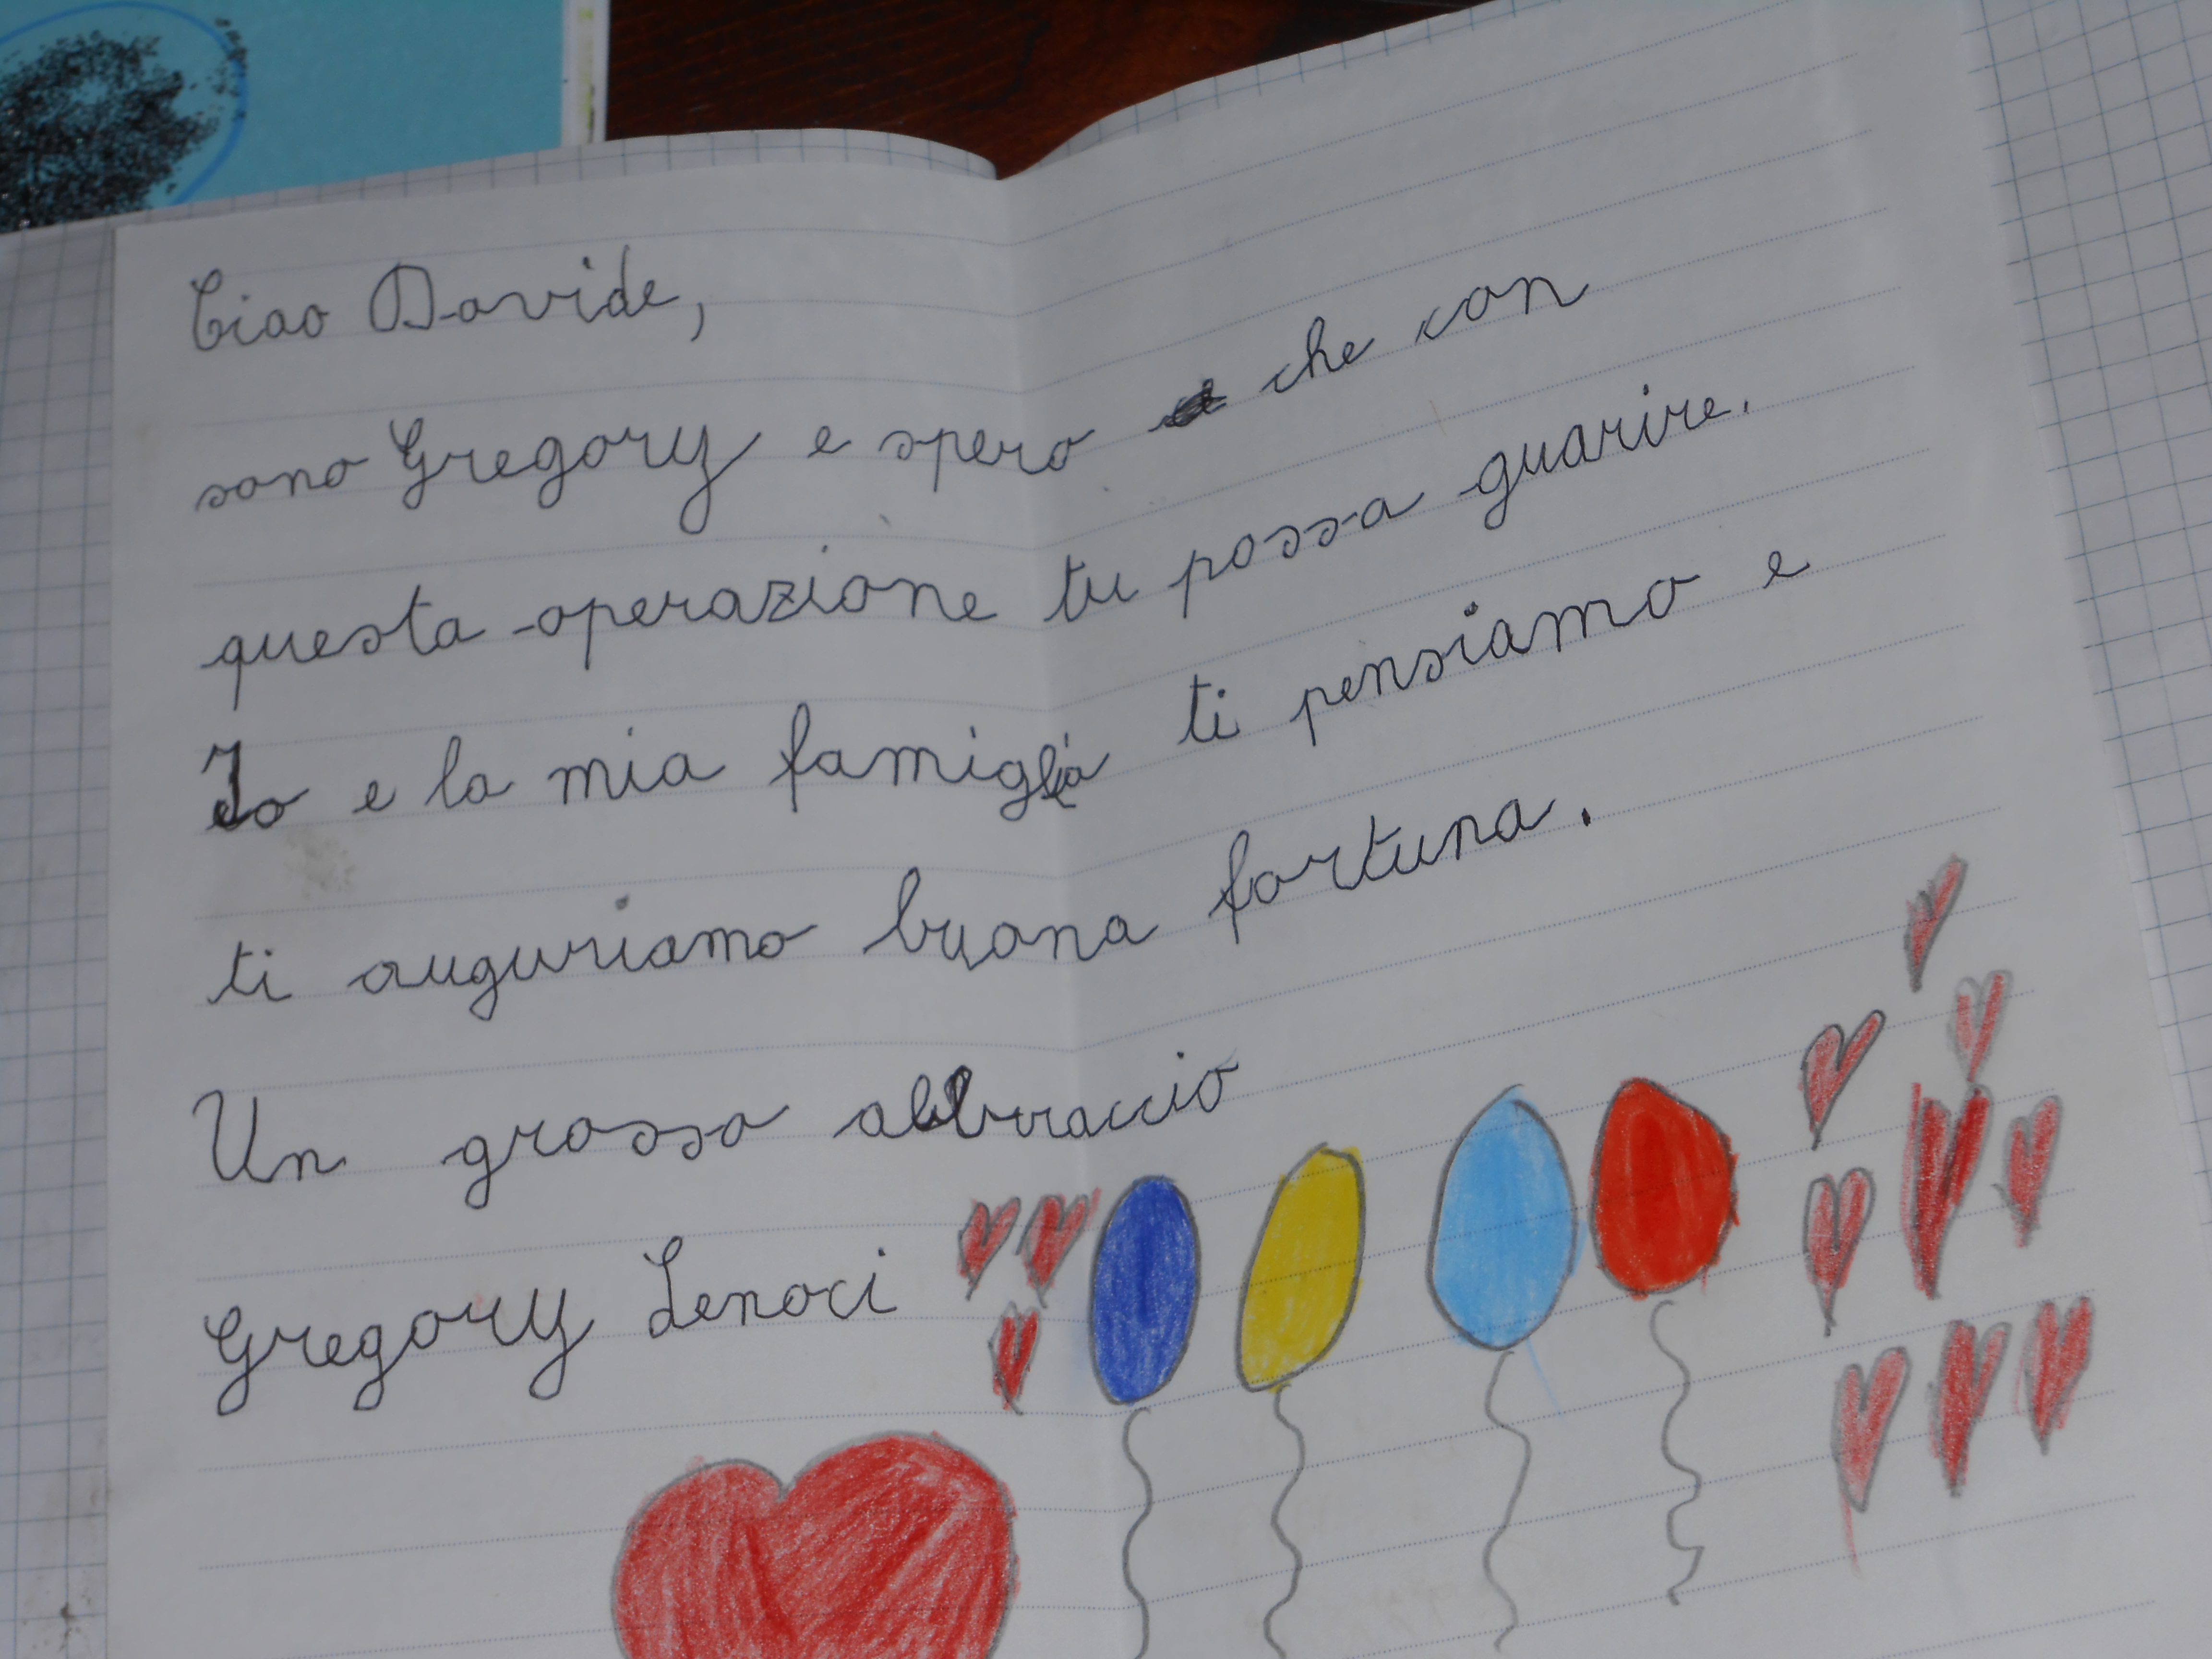 Ciao Davide,
sono Gregory e spero che con
questa operazione tu possa guarire.
Io e la mia famiglia ti pensiamo e
ti auguriamo buona fortuna.
Un grosso abbraccio
Gregory Lenoci